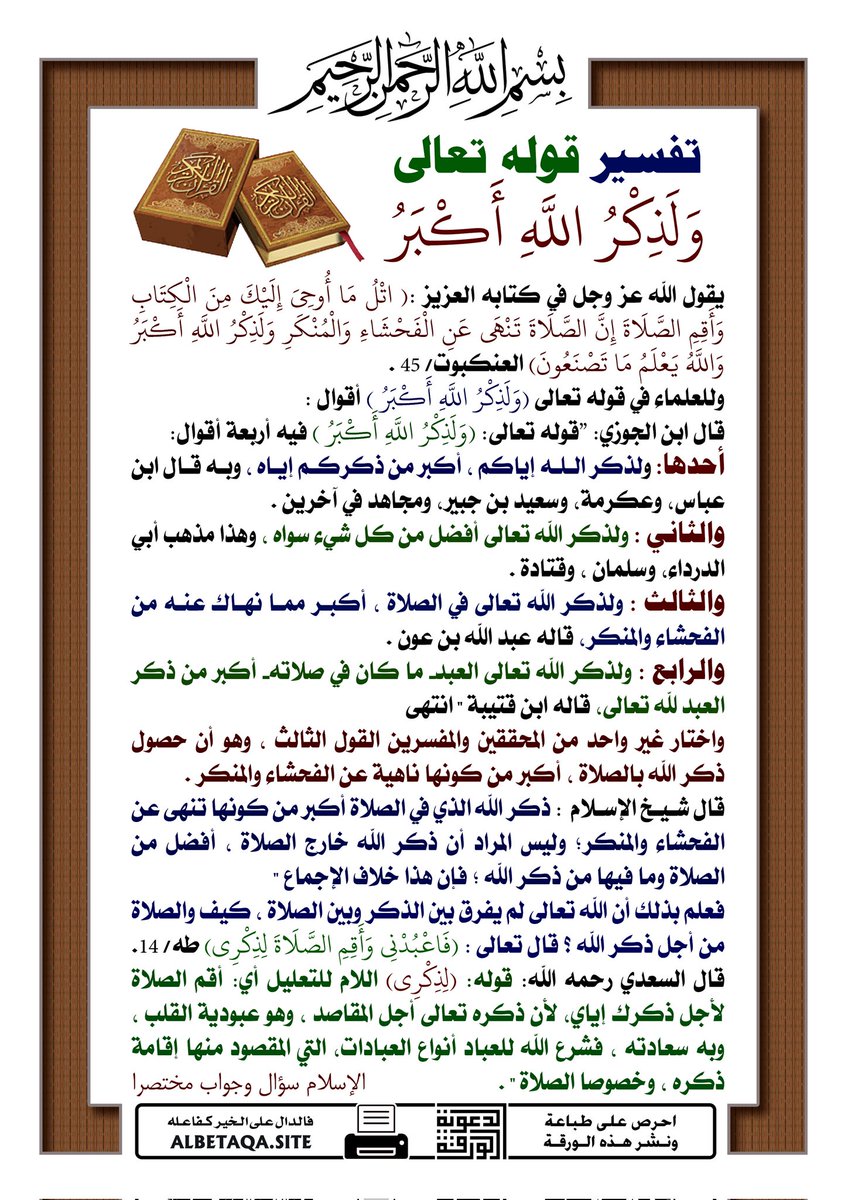 بِسْمِ اللَّهِ الرَّحْمَنِ الرَّحِيمِ
تفسير قوله تعالى
وَلَذِكْرُ اللَّهِ أَكْبَرُ
القرآن الكريم
القرآن الكريم
يقول الله عز وجل في كتابه العزيز :( اتْلُ مَا أُوحِيَ إِلَيْكَ مِنَ الْكِتَابِ
وَأَقِمِ الصَّلَاةَ إِنَّ الصَّلَاةَ تَنْهَى عَنِ الْفَحْشَاءِ وَالْمُنْكَرِ وَلَذِكْرُ اللَّهِ أَكْبَرُ
وَاللَّهُ يَعْلَمُ مَا تَصْنَعُونَ) العنكبوت/ 45 .
وللعلماء في قوله تعالى (وَلَذِكْرُ اللَّهِ أَكْبَرُ ) أقوال :
قال ابن الجوزي: "قوله تعالى: (وَلَذِكْرُ اللَّهِ أَكْبَرُ ) فيه أربعة أقوال:
أحدها: ولذكر الله إياكم ، أكبر من ذكركم إياه ، وبه قال ابن
عباس، وعكرمة، وسعيد بن جبير، ومجاهد في آخرين .
والثاني : ولذكر الله تعالى أفضل من كل شيء سواه ، وهذا مذهب أبي
الدرداء، وسلمان ، وقتادة .
والثالث : ولذكر الله تعالى في الصلاة ، أكبر مما نهاك عنه من
الفحشاء والمنكر، قاله عبد الله بن عون .
والرابع : ولذكر الله تعالى العبدـ ما كان في صلاتهـ أكبر من ذكر
العبد لله تعالى، قاله ابن قتيبة " انتهى
واختار غير واحد من المحققين والمفسرين القول الثالث ، وهو أن حصول
ذكر الله بالصلاة ، أكبر من كونها ناهية عن الفحشاء والمنكر .
قال شيخ الإسلام : ذكر الله الذي في الصلاة أكبر من كونها تنهى عن
الفحشاء والمنكر؛ وليس المراد أن ذكر الله خارج الصلاة ، أفضل من
الصلاة وما فيها من ذكر الله ؛ فإن هذا خلاف الإجماع "
فعلم بذلك أن الله تعالى لم يفرق بين الذكر وبين الصلاة ، كيف والصلاة
من أجل ذكر الله ؟ قال تعالى : (فَاعْبُدْنِي وَأَقِمِ الصَّلَاةَ لِذِكْرِي) طه/ 14.
قال السعدي رحمه الله: قوله: (لِذِكْرِي) اللام للتعليل أي: أقم الصلاة
لأجل ذكرك إياي، لأن ذكره تعالى أجل المقاصد ، وهو عبودية القلب ،
وبه سعادته ، فشرع الله للعباد أنواع العبادات، التي المقصود منها إقامة
ذكره ، وخصوصا الصلاة " . الإسلام سؤال وجواب مختصرا
احرص على طباعة
ونشر هذه الورقة
الورقة الدعوية
فالدال على الخير كفاعله
ALBETAQA.SITE